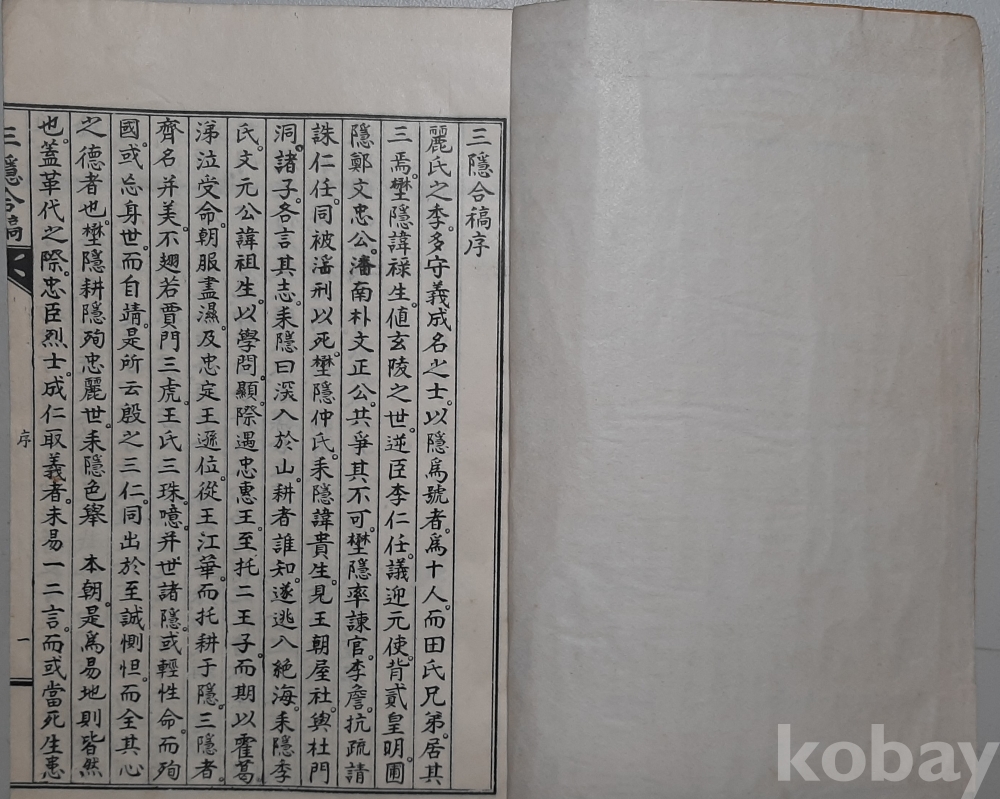 三隱合稿序
麗氏之季。多守義成名之士。以隱爲號者。爲十人。而田氏兄弟。居其
三焉。壄隱諱祿生。値玄陵之世。逆臣李仁任。議迎元使。背貳皇明。圃
隱鄭文忠公。潘南朴文正公。共爭其不可。壄隱率諫官。李詹。抗疏請
誅仁任。同被滛刑以死。壄隱仲氏。耒隱諱貴生。見王朝屋社。與杜門
洞。諸子。各言其志。耒隱曰深入於山。耕者誰知。遂逃入絶海。耒隱季
氏。文元公諱祖生。以學問。顯際遇忠惠王。至托二王子。而期以霍葛
涕泣受命。朝服盡濕。及忠定王遜位。從王江華。而托耕于隱。三隱者
齊名并美。不翅若賈門三虎。王氏三珠。噫。并世諸隱。或輕性命。而殉
國。或忘身世。而自靖。是所云殷之三仁。同出於至誠惻怛。而全其心
之德者也。壄隱耕隱殉忠麗世。耒隱色擧 本朝。是爲易地則皆然
也。蓋革代之際。忠臣烈士。成仁取義者。未易一二言。而或當死生患
三隱合稿
序
一
kobay